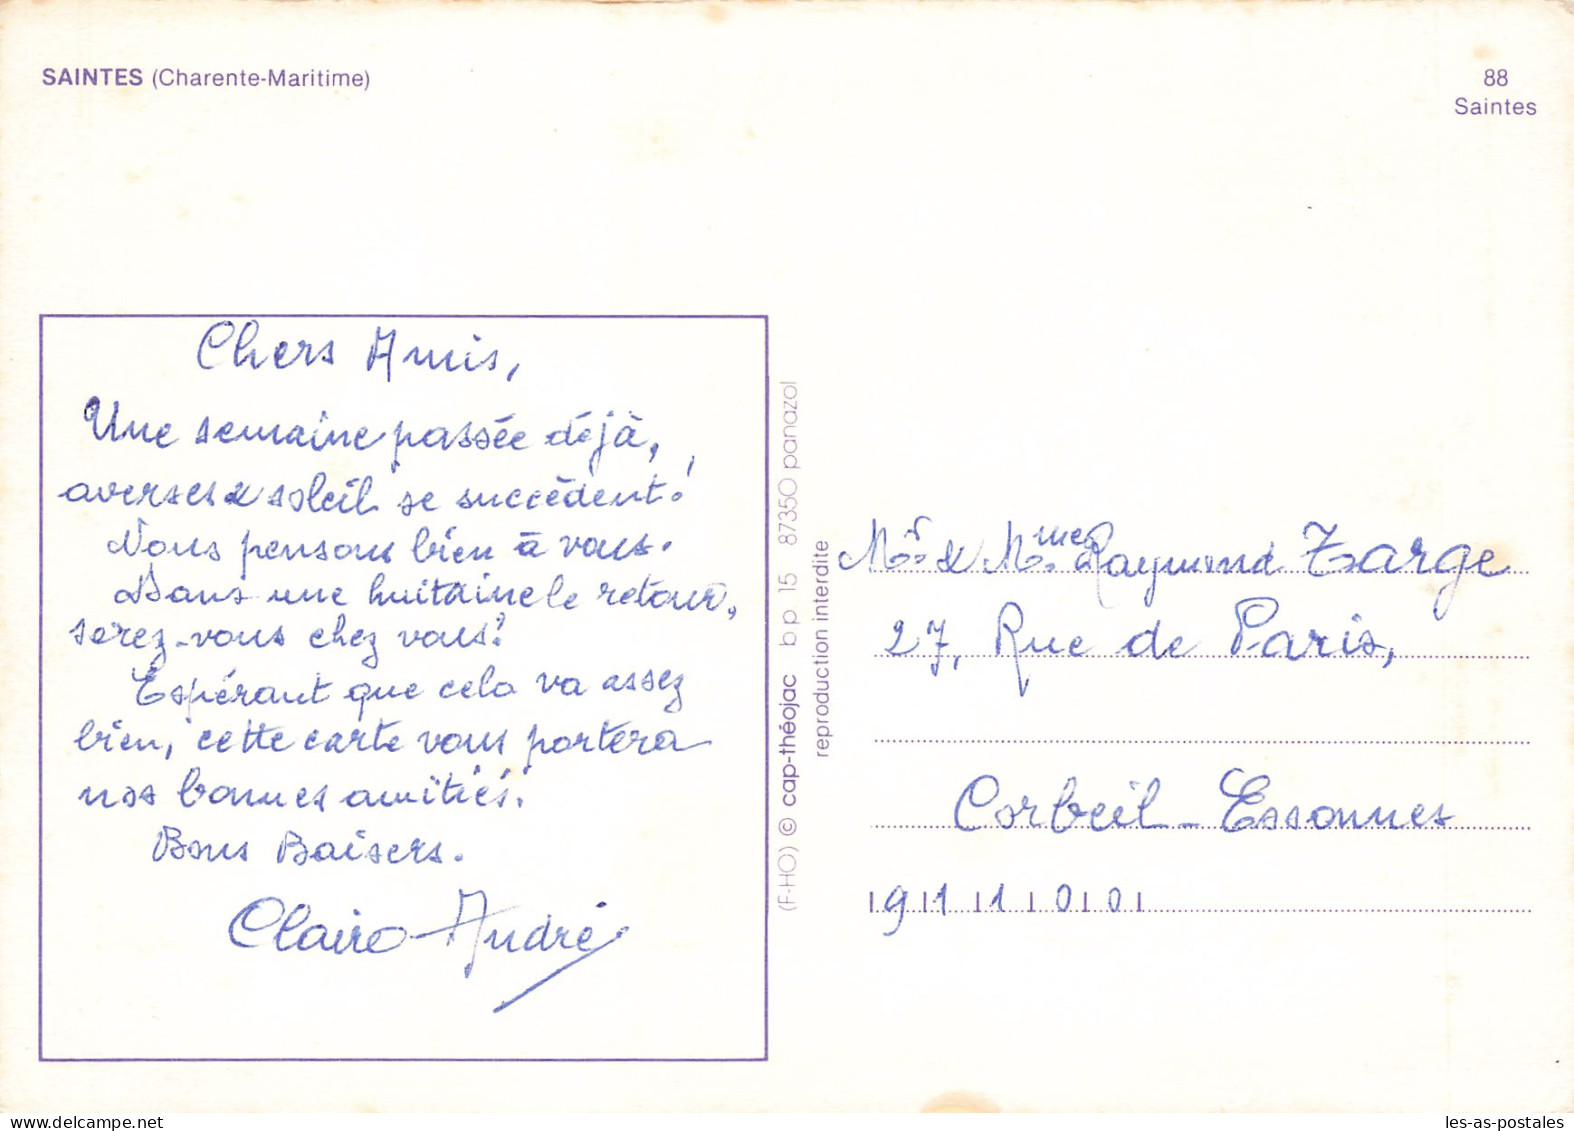 SAINTES (Charente-Maritime)
88
Saintes
Chers Amis,
Une semaine passée déjà,
averses & soleil se succèdent!
Nous pensons bien à vous.
Dans une huitaine le retour,
serez-vous chez vous?
Espérant que cela va assez
bien, cette carte vous portera
nos bonnes amitiés.
Bons Baisers.
Claire André
(F-HO) © cap-théojac bp 15 87350 panazol
reproduction interdite
Mr. & Mme. Raymond Targe
27, Rue de Paris,
Corbeil-Essonnes
91100
les-as-postales